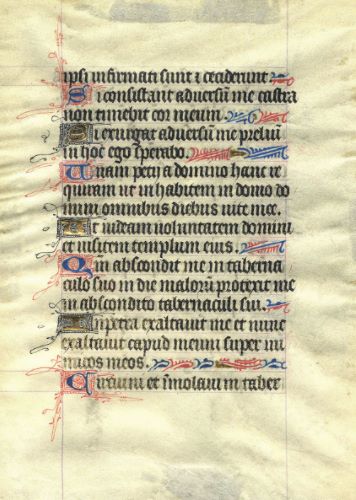 ipsi infirmati sunt ⁊ ceciderunt.
Si consistant adversum me castra
non timebit cor meum.
Si exurgat adversum me prelium
in hoc ego sperabo.
Unam petii a domino hanc re
quiram ut inhabitem in domo do
mini omnibus diebus vite mee.
Ut videam voluntatem domini
et visitem templum eius.
Qm abscondit me in taberna
culo suo in die malorum protexit me
in abscondito tabernaculi sui.
In petra exaltavit me et nunc
exaltavit caput meum super ini
micos meos.
Circuivi et immolavi in taber